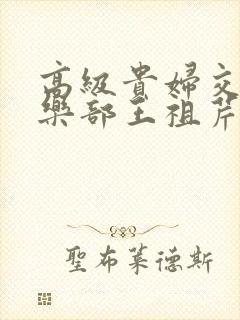 高級貴婦交
樂部王祖芹
聖布萊德斯